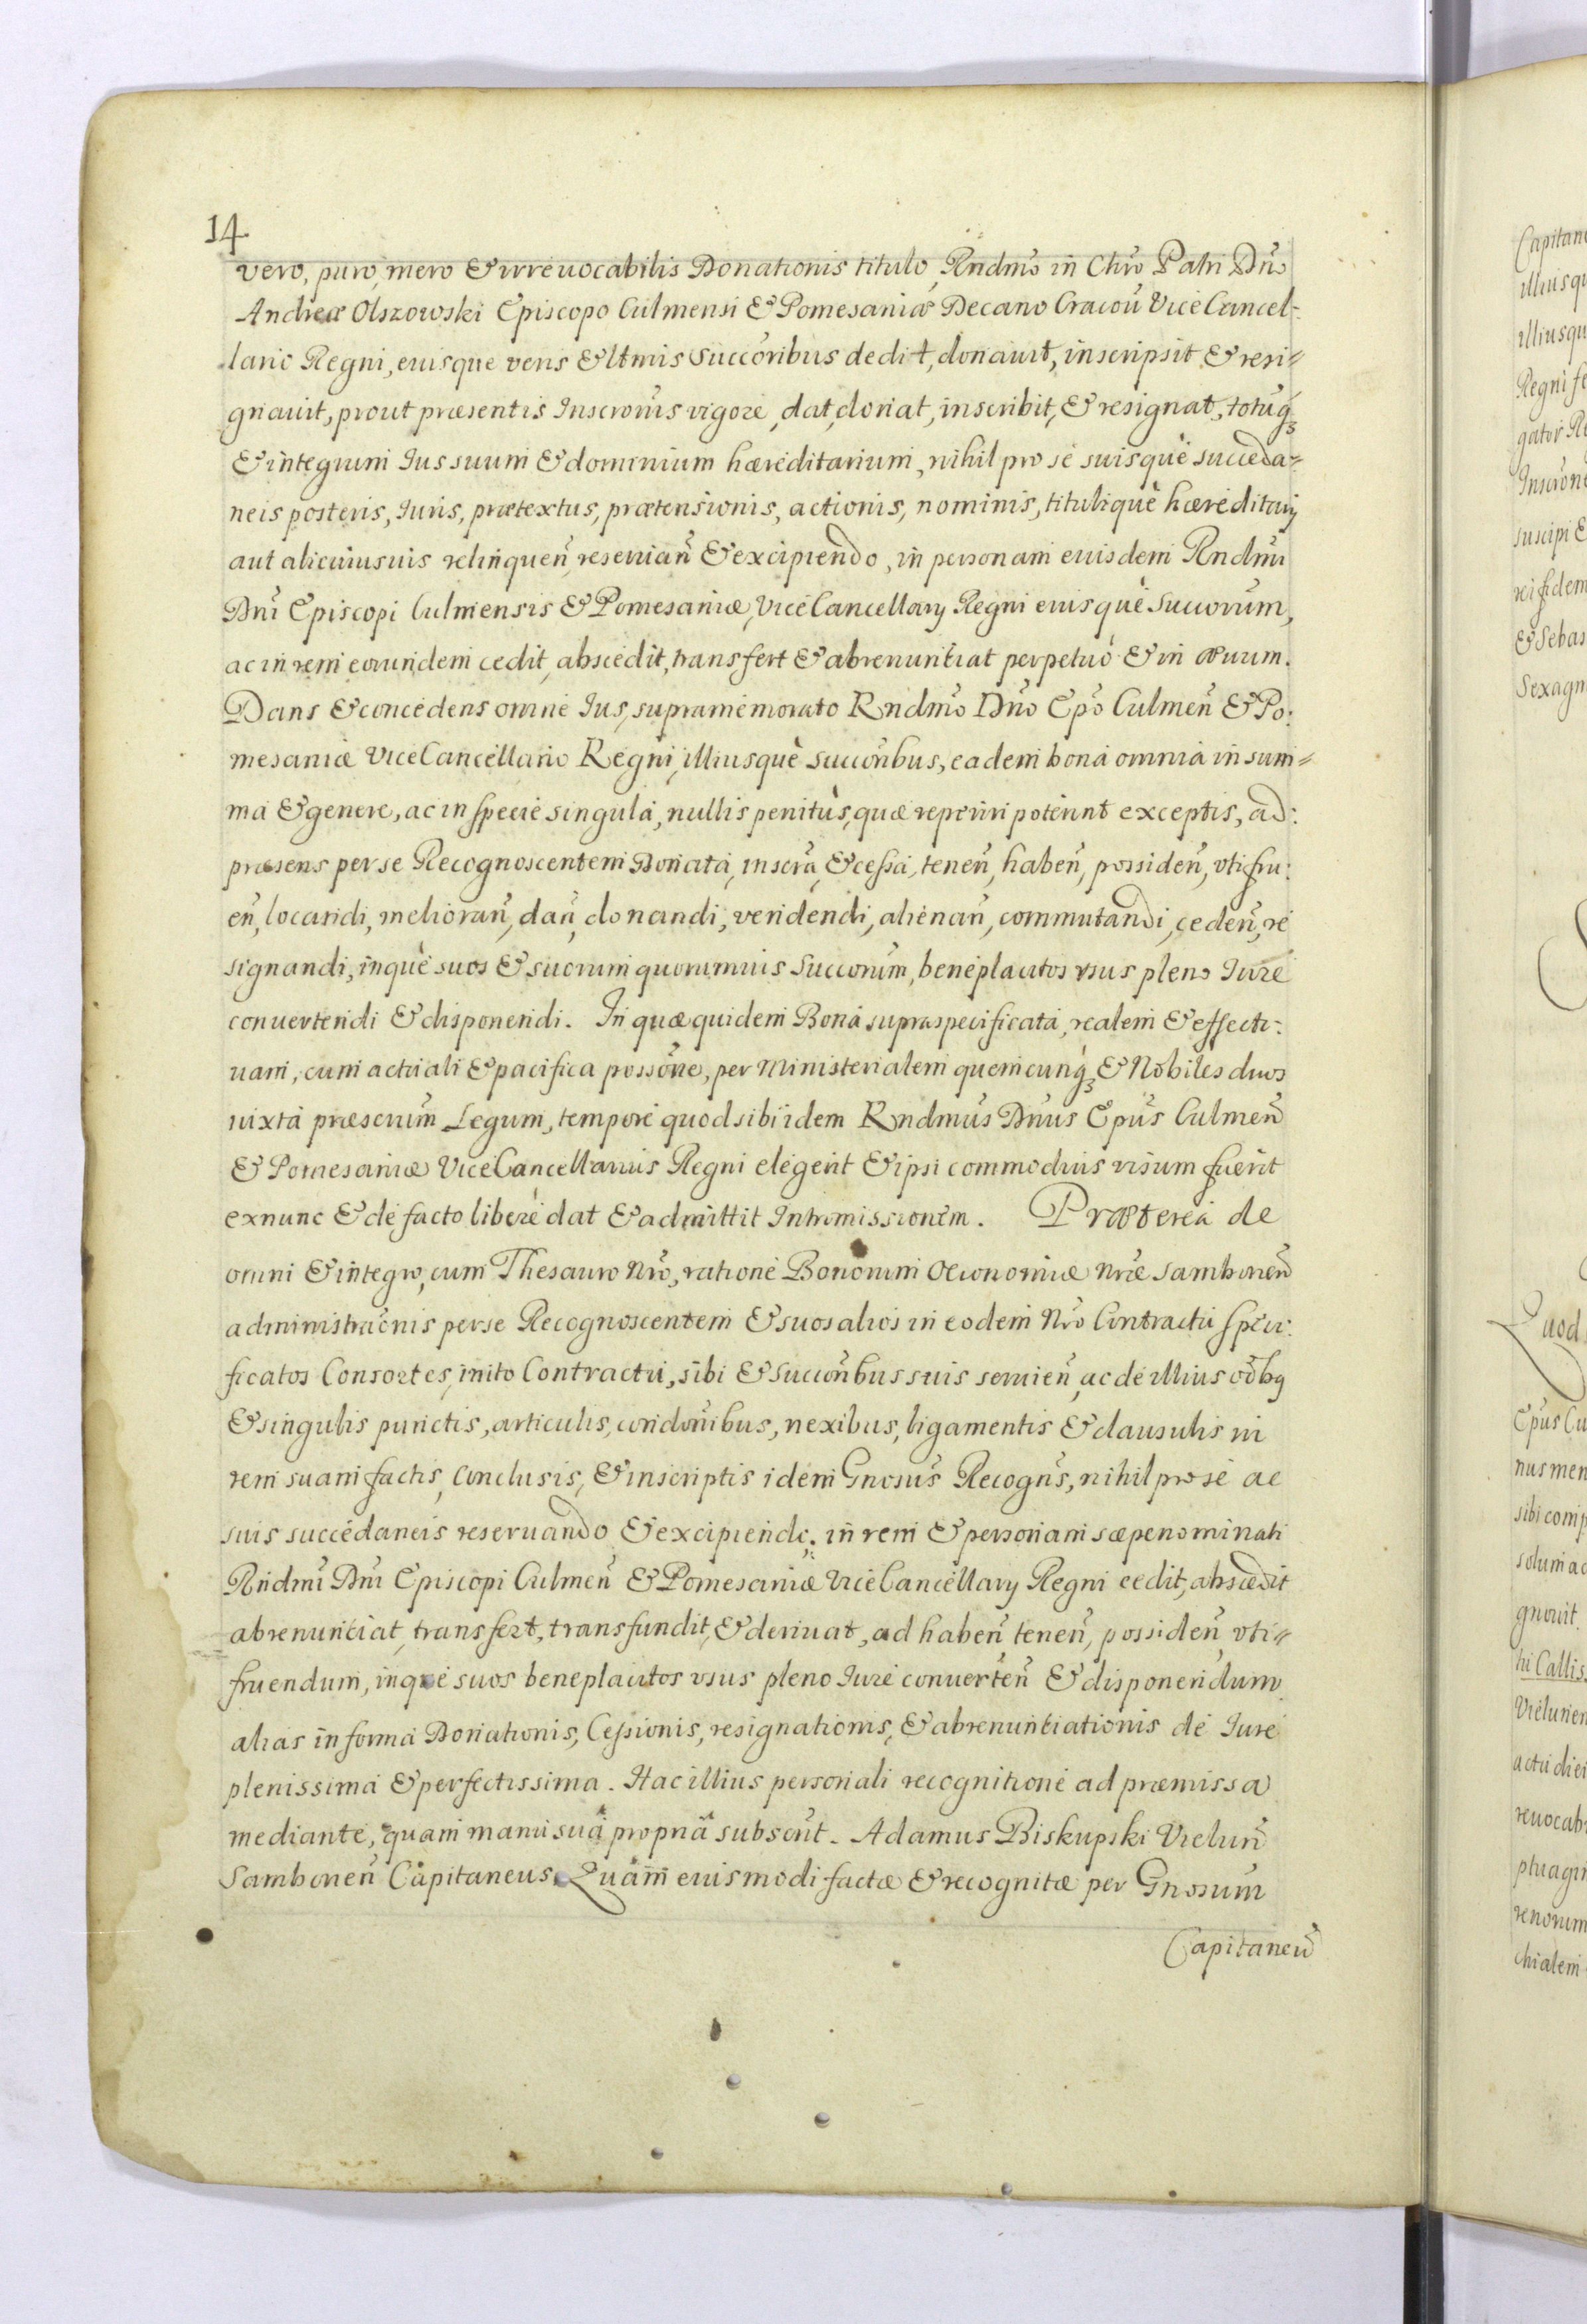 14
vero, puro, mero & irreuocabilis Donationis titulo, Rndmo in Chro Patri Dno
Andreæ Olszowski Episcopo Culmensi & Pomesaniæ Decano Cracoũ Vice Cancel-
lario Regni, eiusque veris & ltmis Succõribus dedit, donauit, inscripsit & resi=
gnauit, prout præsentis Inscrõnis vigore, dat, donat, inscribit, & resignat, totũq3
& integrum Ius suum & dominium hæreditarium, nihil pro se suisque succeda=
neis posteris, Iuris, prætextus, prætensionis, actionis, nominis, titulique hæreditarij
aut alicuiusuis relinqueñ, reseruañ & excipiendo, in personam eiusdem Rndmi
Dni Episcopi Culmensis & Pomesaniæ, Vice Cancellarij Regni eiusque Succorum,
ac in rem eorundem cedit, abscedit, transfert & abrenuntiat perpetuò & in æuum.
Dans & concedens omne Ius, supramemorato Rndmo Dno Epo Culmeñ & Po:
mesaniæ Vice Cancellario Regni, illiusque succõribus, eadem bona omnia in sum=
ma & genere, ac in specie singula, nullis penitùs, quæ reperiri poterint exceptis, ad:
præsens per se Recognoscentem Donata, inscrã, & cessa, teneñ, habeñ, possideñ, vtifru:
eñ, locandi, meliorañ, dañ, donandi, vendendi, alienañ, commutandi, cedeñ, re
signandi, inque suos & suorum quorumuis Succorum, beneplacitos vsus pleno Iure
conuertendi & disponendi. In quæ quidem Bona supraspecificata, realem & effecti:
uam, cum actuali & pacifica possõne, per Ministerialem quemcunq3 & Nobiles duos
iuxta præscrium Legum, tempore quod sibi idem Rndmus Dnus Epus Culmeñ
& Pomesaniæ Vice Cancellarius Regni elegerit & ipsi commodius visum fuerit
exnunc & de facto liberè dat & admittit Intromissionem. Præterea de
omni & integro, cum Thesauro Nro, ratione Bonorum Oeconomiæ Nræ Samboreñ
administracõnis per se Recognoscentem & suos alios in eodem Nro Contractu speci:
ficatos Consortes, inito Contractu, sibi & Succõribus suis seruieñ, ac de illius oĩbq
& singulis punctis, articulis, condõnibus, nexibus, ligamentis & clausulis in
rem suam factis, conclusis, & inscriptis idem Gnosus Recogns, nihil pro se ac
suis succedaneis reseruando & excipiendo. in rem & personam sæpenominati
Rndmi Dni Episcopi Culmeñ & Pomesaniæ Vice Cancellarij Regni cedit, abscedit
abrenunciat, transfert, transfundit, & deriuat, ad habeñ teneñ, possideñ vti=
fruendum, inque suos beneplacitos vsus pleno Iure conuerteñ & disponendum
alias in forma Donationis, Cessionis, resignationis, & abrenuntiationis de Iure
plenissima & perfectissima. Hac illius personali recognitione ad præmissa
mediante, quam manu suâ propriâ subscrit. Adamus Biskupski Vieluñ
Samboreñ Capitaneus. Quam eiusmodi factæ & recognitæ per Gnosum
Capitaneũ